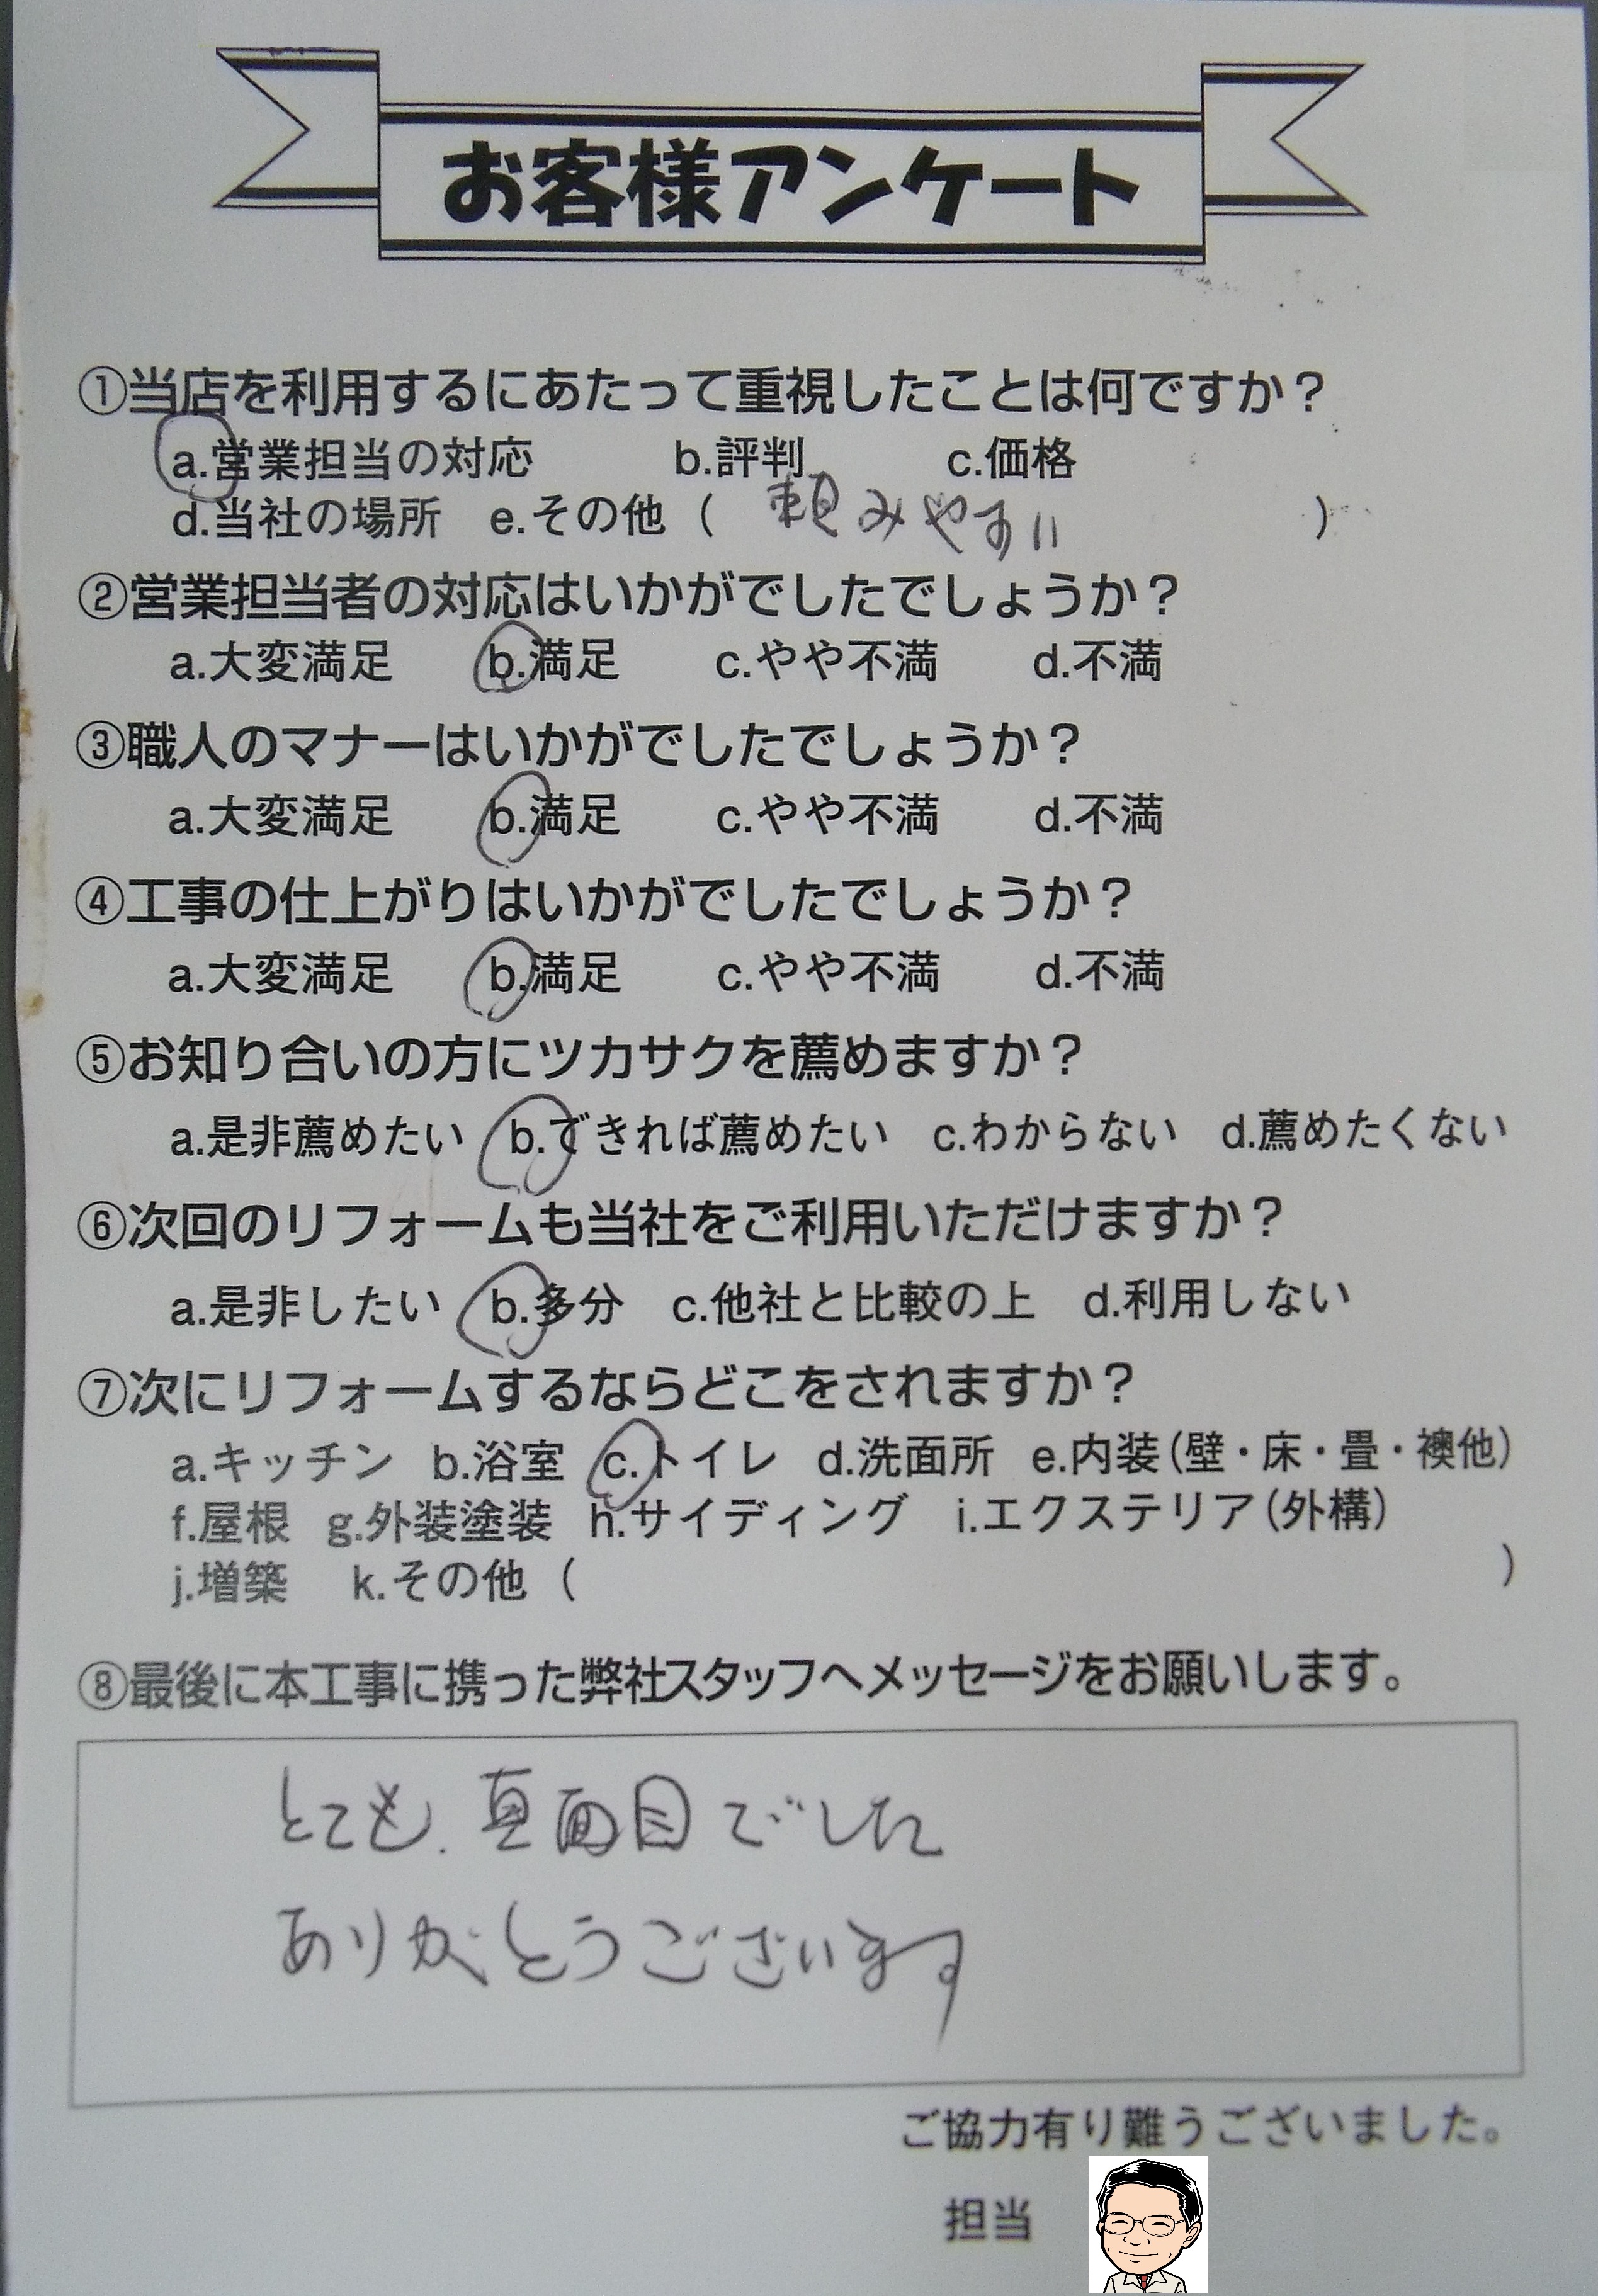 お客様アンケート
①当店を利用するにあたって重視したことは何ですか？
a.営業担当の対応 b.評判 c.価格
d.当社の場所 e.その他（ 頼みやすい ）
②営業担当者の対応はいかがでしたでしょうか？
a.大変満足 b.満足 c.やや不満 d.不満
③職人のマナーはいかがでしたでしょうか？
a.大変満足 b.満足 c.やや不満 d.不満
④工事の仕上がりはいかがでしたでしょうか？
a.大変満足 b.満足 c.やや不満 d.不満
⑤お知り合いの方にツカサクを薦めますか？
a.是非薦めたい b.できれば薦めたい c.わからない d.薦めたくない
⑥次回のリフォームも当社をご利用いただけますか？
a.是非したい b.多分 c.他社と比較の上 d.利用しない
⑦次にリフォームするならどこをされますか？
a.キッチン b.浴室 c.トイレ d.洗面所 e.内装（壁・床・畳・襖他）
f.屋根 g.外装塗装 h.サイディング i.エクステリア（外構）
j.増築 k.その他（ ）
⑧最後に本工事に携った弊社スタッフへメッセージをお願いします。
とても.真面目でした
ありがとうございます
ご協力有り難うございました。
担当